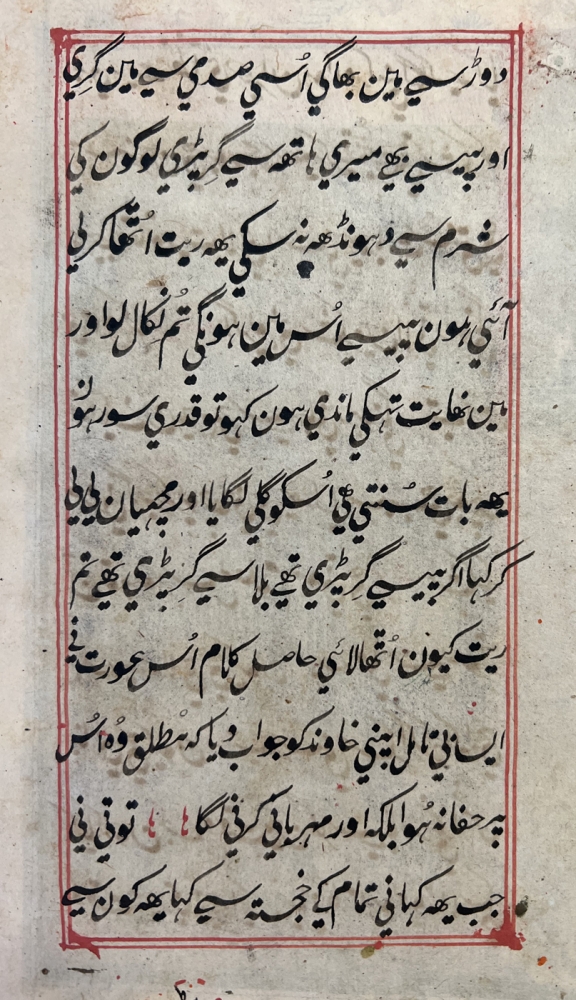 دوڑسے مین بھاگي اُسي صدمي سے مین گِري
اورپیسے بھے میري ہاتھہ سے گِر پڑي لوگون کي
شرم سے دہونڈھہ نہ سکي یھہ ریت اُٹھا کر لي
آئي ہون پیسے اُس مین ہونگي تُم نکال لو اور
مین نھایت تہکي ماندي ہون کہو تو قدري سو رہوُن
یھہ بات سُنتي هي اُسکو گلي لگایا اور مچھیان لي لي
کر کہا اگر پیسے گِر پڑي تھے بلا سے گِر پڑي تھے تم
ریت کیون اُٹھا لائي حاصل کلام اُس عورت ني
ایسا بي تامل اپني خاوند کو جواب دیا کہ مُطلق وُہ اُس
پر خفا نہ ہُوا بلکہ اور مہرباني کرني لگا ہا ہا توتي ني
جب یھہ کہاني تمام کے خجستہ سے کہا یھہ کون سے